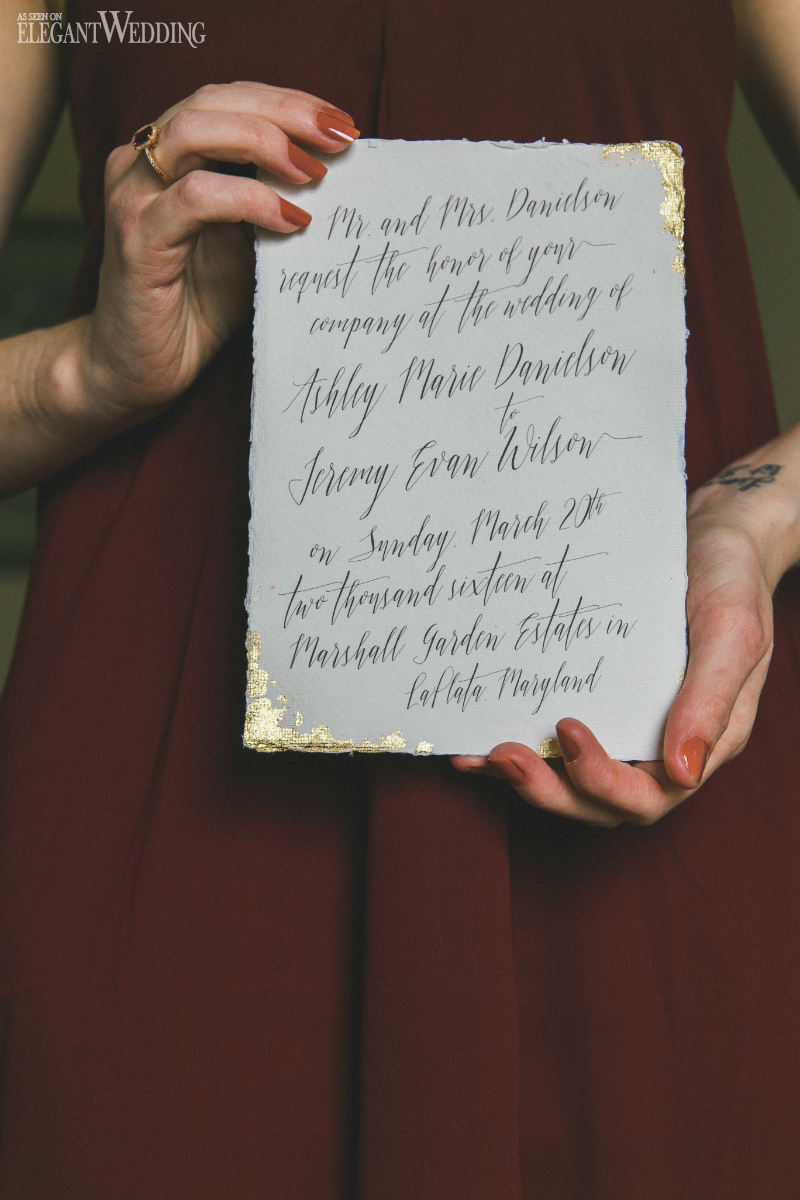 AS SEEN ON
ELEGANTWEDDING
Mr. and Mrs. Danielson
request the honor of your
company at the wedding of
Ashley Marie Danielson
to
Jeremy Evan Wilson
on Sunday, March 20th
two thousand sixteen at
Marshall Garden Estates in
LaPlata, Maryland